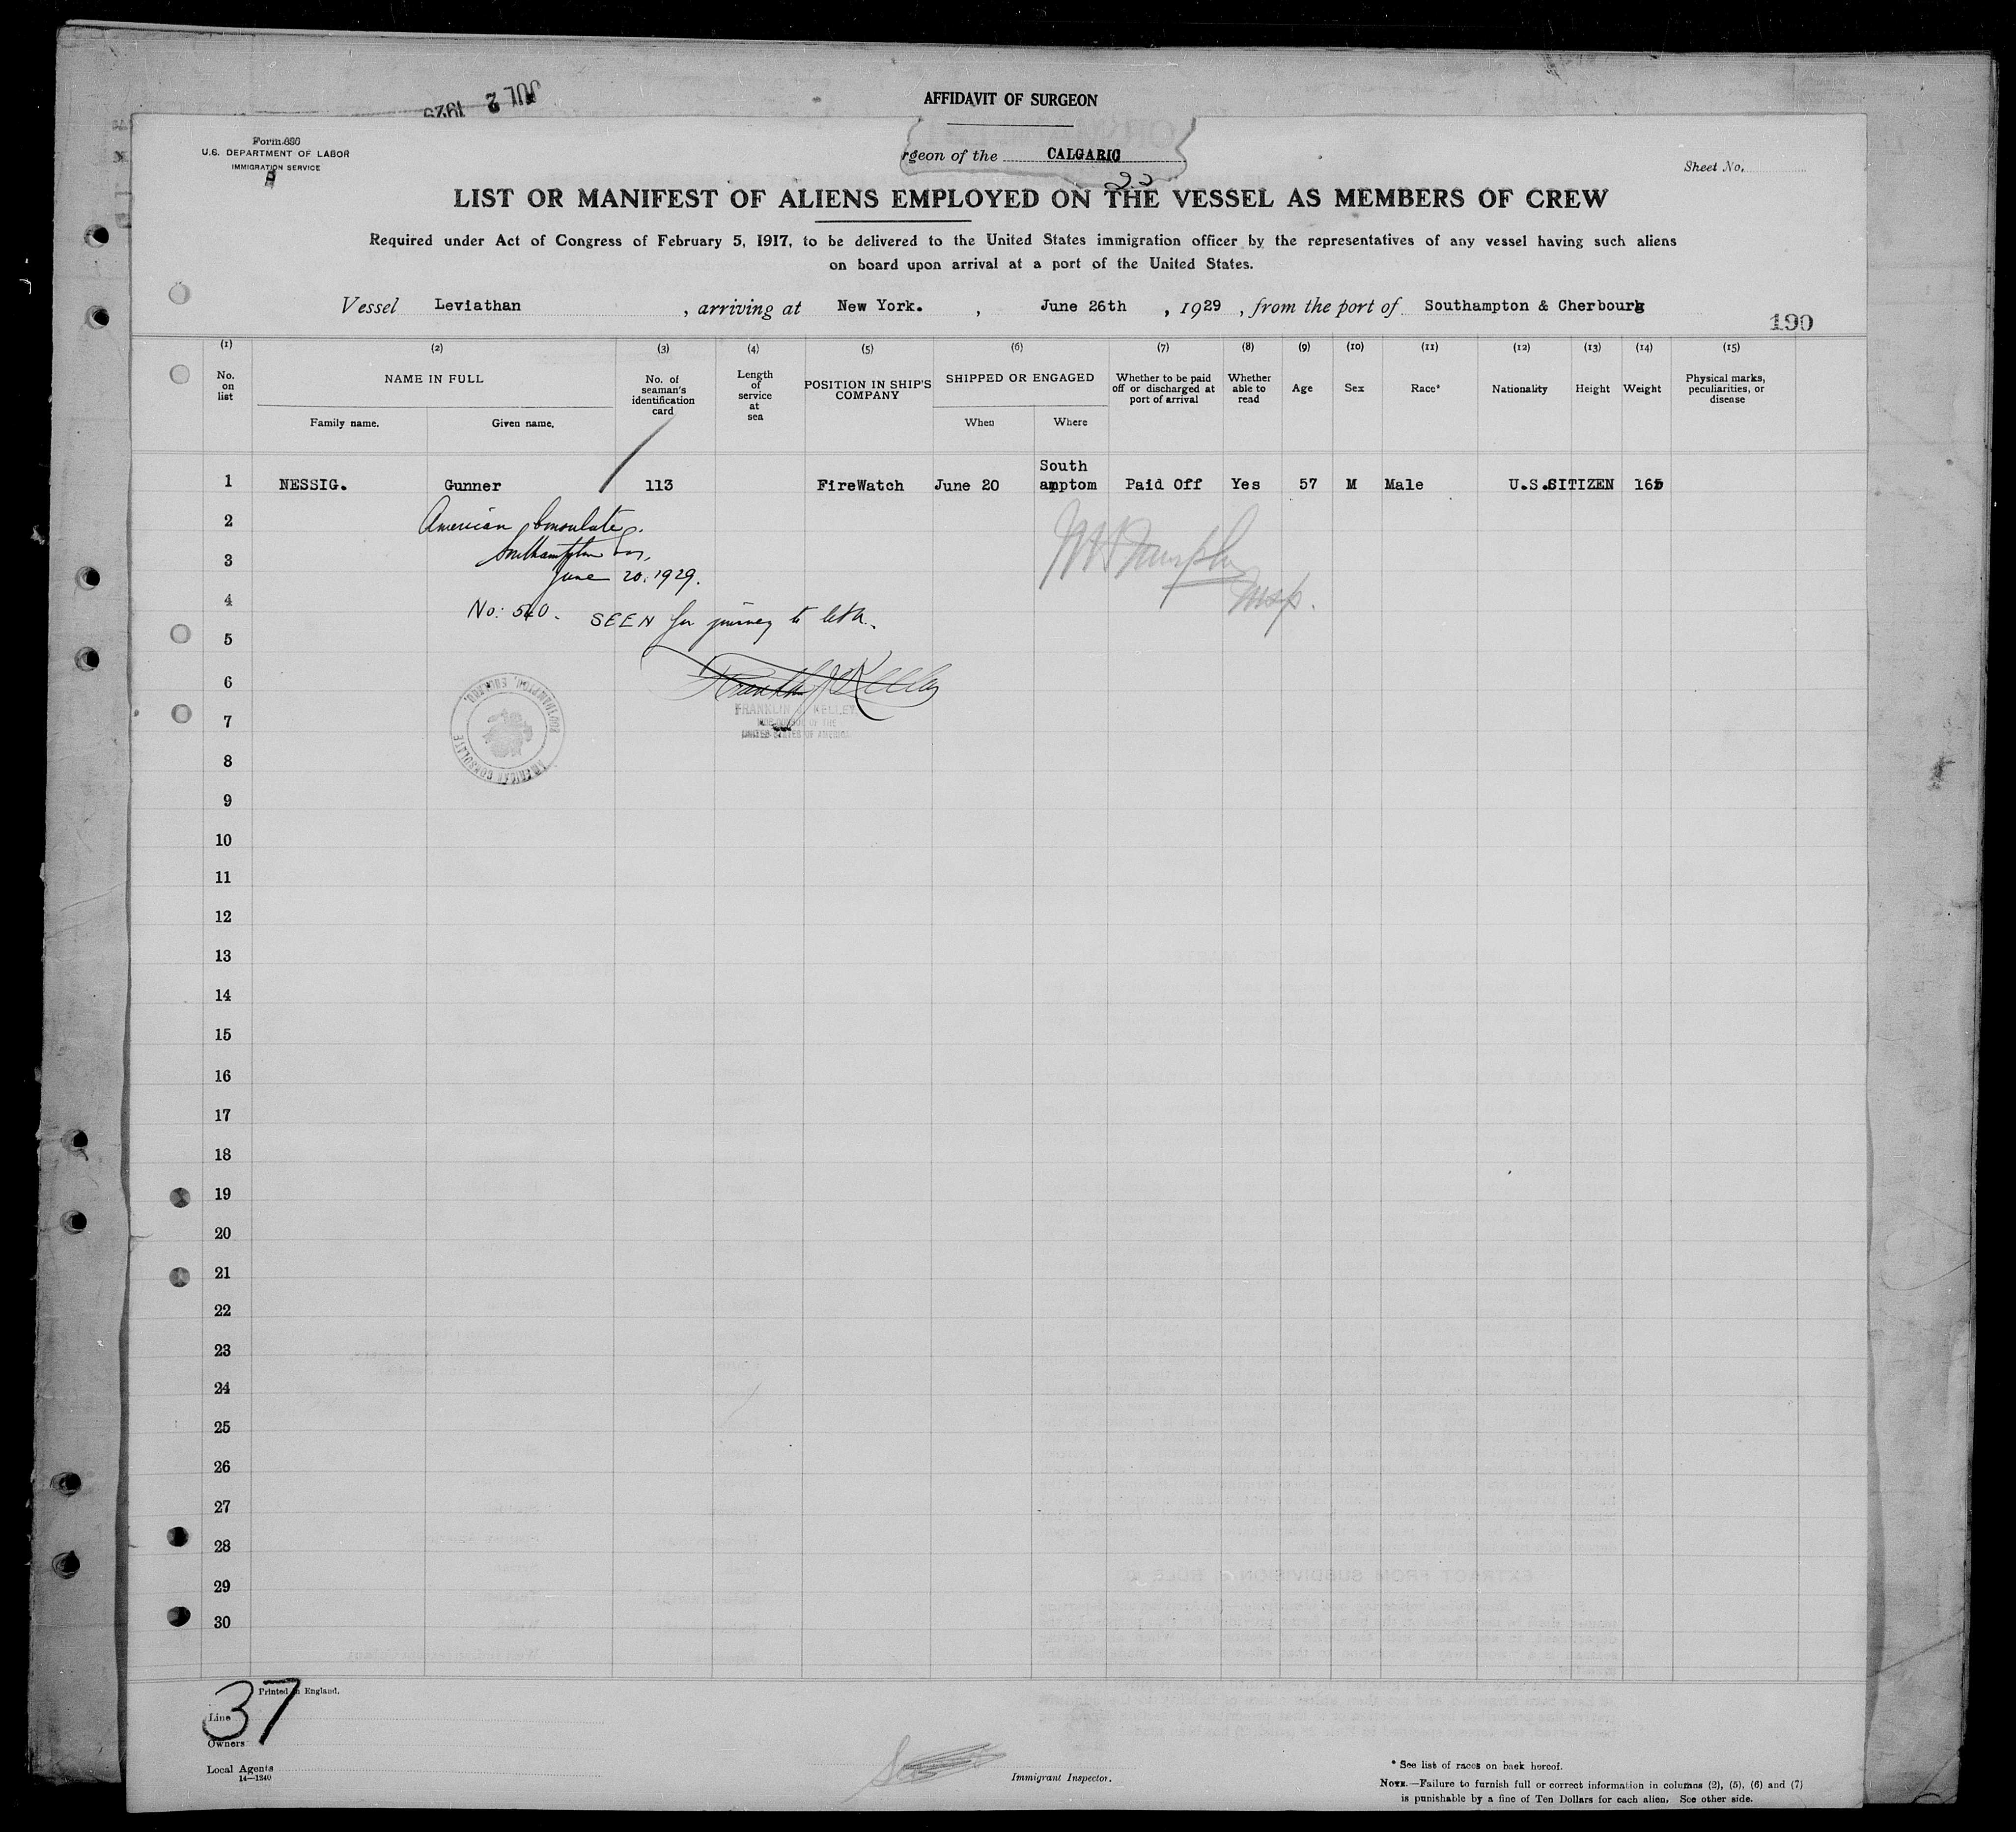 JUL 2 1929
AFFIDAVIT OF SURGEON
Form 680
U.S. DEPARTMENT OF LABOR
IMMIGRATION SERVICE
rgeon of the CALGARIC
Sheet No.
22
LIST OR MANIFEST OF ALIENS EMPLOYED ON THE VESSEL AS MEMBERS OF CREW
Required under Act of Congress of February 5, 1917, to be delivered to the United States immigration officer by the representatives of any vessel having such aliens
on board upon arrival at a port of the United States.
Vessel Leviathan , arriving at New York. , June 26th , 1929 , from the port of Southampton & Cherbourg
190
(1) (2) (3) (4) (5) (6) (7) (8) (9) (10) (11) (12) (13) (14) (15)
No. on list
NAME IN FULL
Family name.
Given name.
No. of seaman's identification card
Length of service at sea
POSITION IN SHIP'S COMPANY
SHIPPED OR ENGAGED
When
Where
Whether to be paid off or discharged at port of arrival
Whether able to read
Age
Sex
Race*
Nationality
Height
Weight
Physical marks, peculiarities, or disease
1 NESSIG. Gunner 113 FireWatch June 20 South amptom Paid Off Yes 57 M Male U.S.SITIZEN 165
2
American Consulate,
3
Southampton Eng,
June 20, 1929.
4
No: 540. SEEN for journey to U.S.A.
5
6
7
FRANKLIN J. KELLEY
OF THE
UNITED STATES OF AMERICA
AMERICAN CONSULATE
SOUTHAMPTON, ENGLAND.
8
9
10
11
12
13
14
15
16
17
18
19
20
21
22
23
24
25
26
27
28
29
30
37
Printed in England.
Line
Owners
Local Agents
14—1240
Immigrant Inspector.
* See list of races on back hereof.
NOTE.—Failure to furnish full or correct information in columns (2), (5), (6) and (7)
is punishable by a fine of Ten Dollars for each alien. See other side.